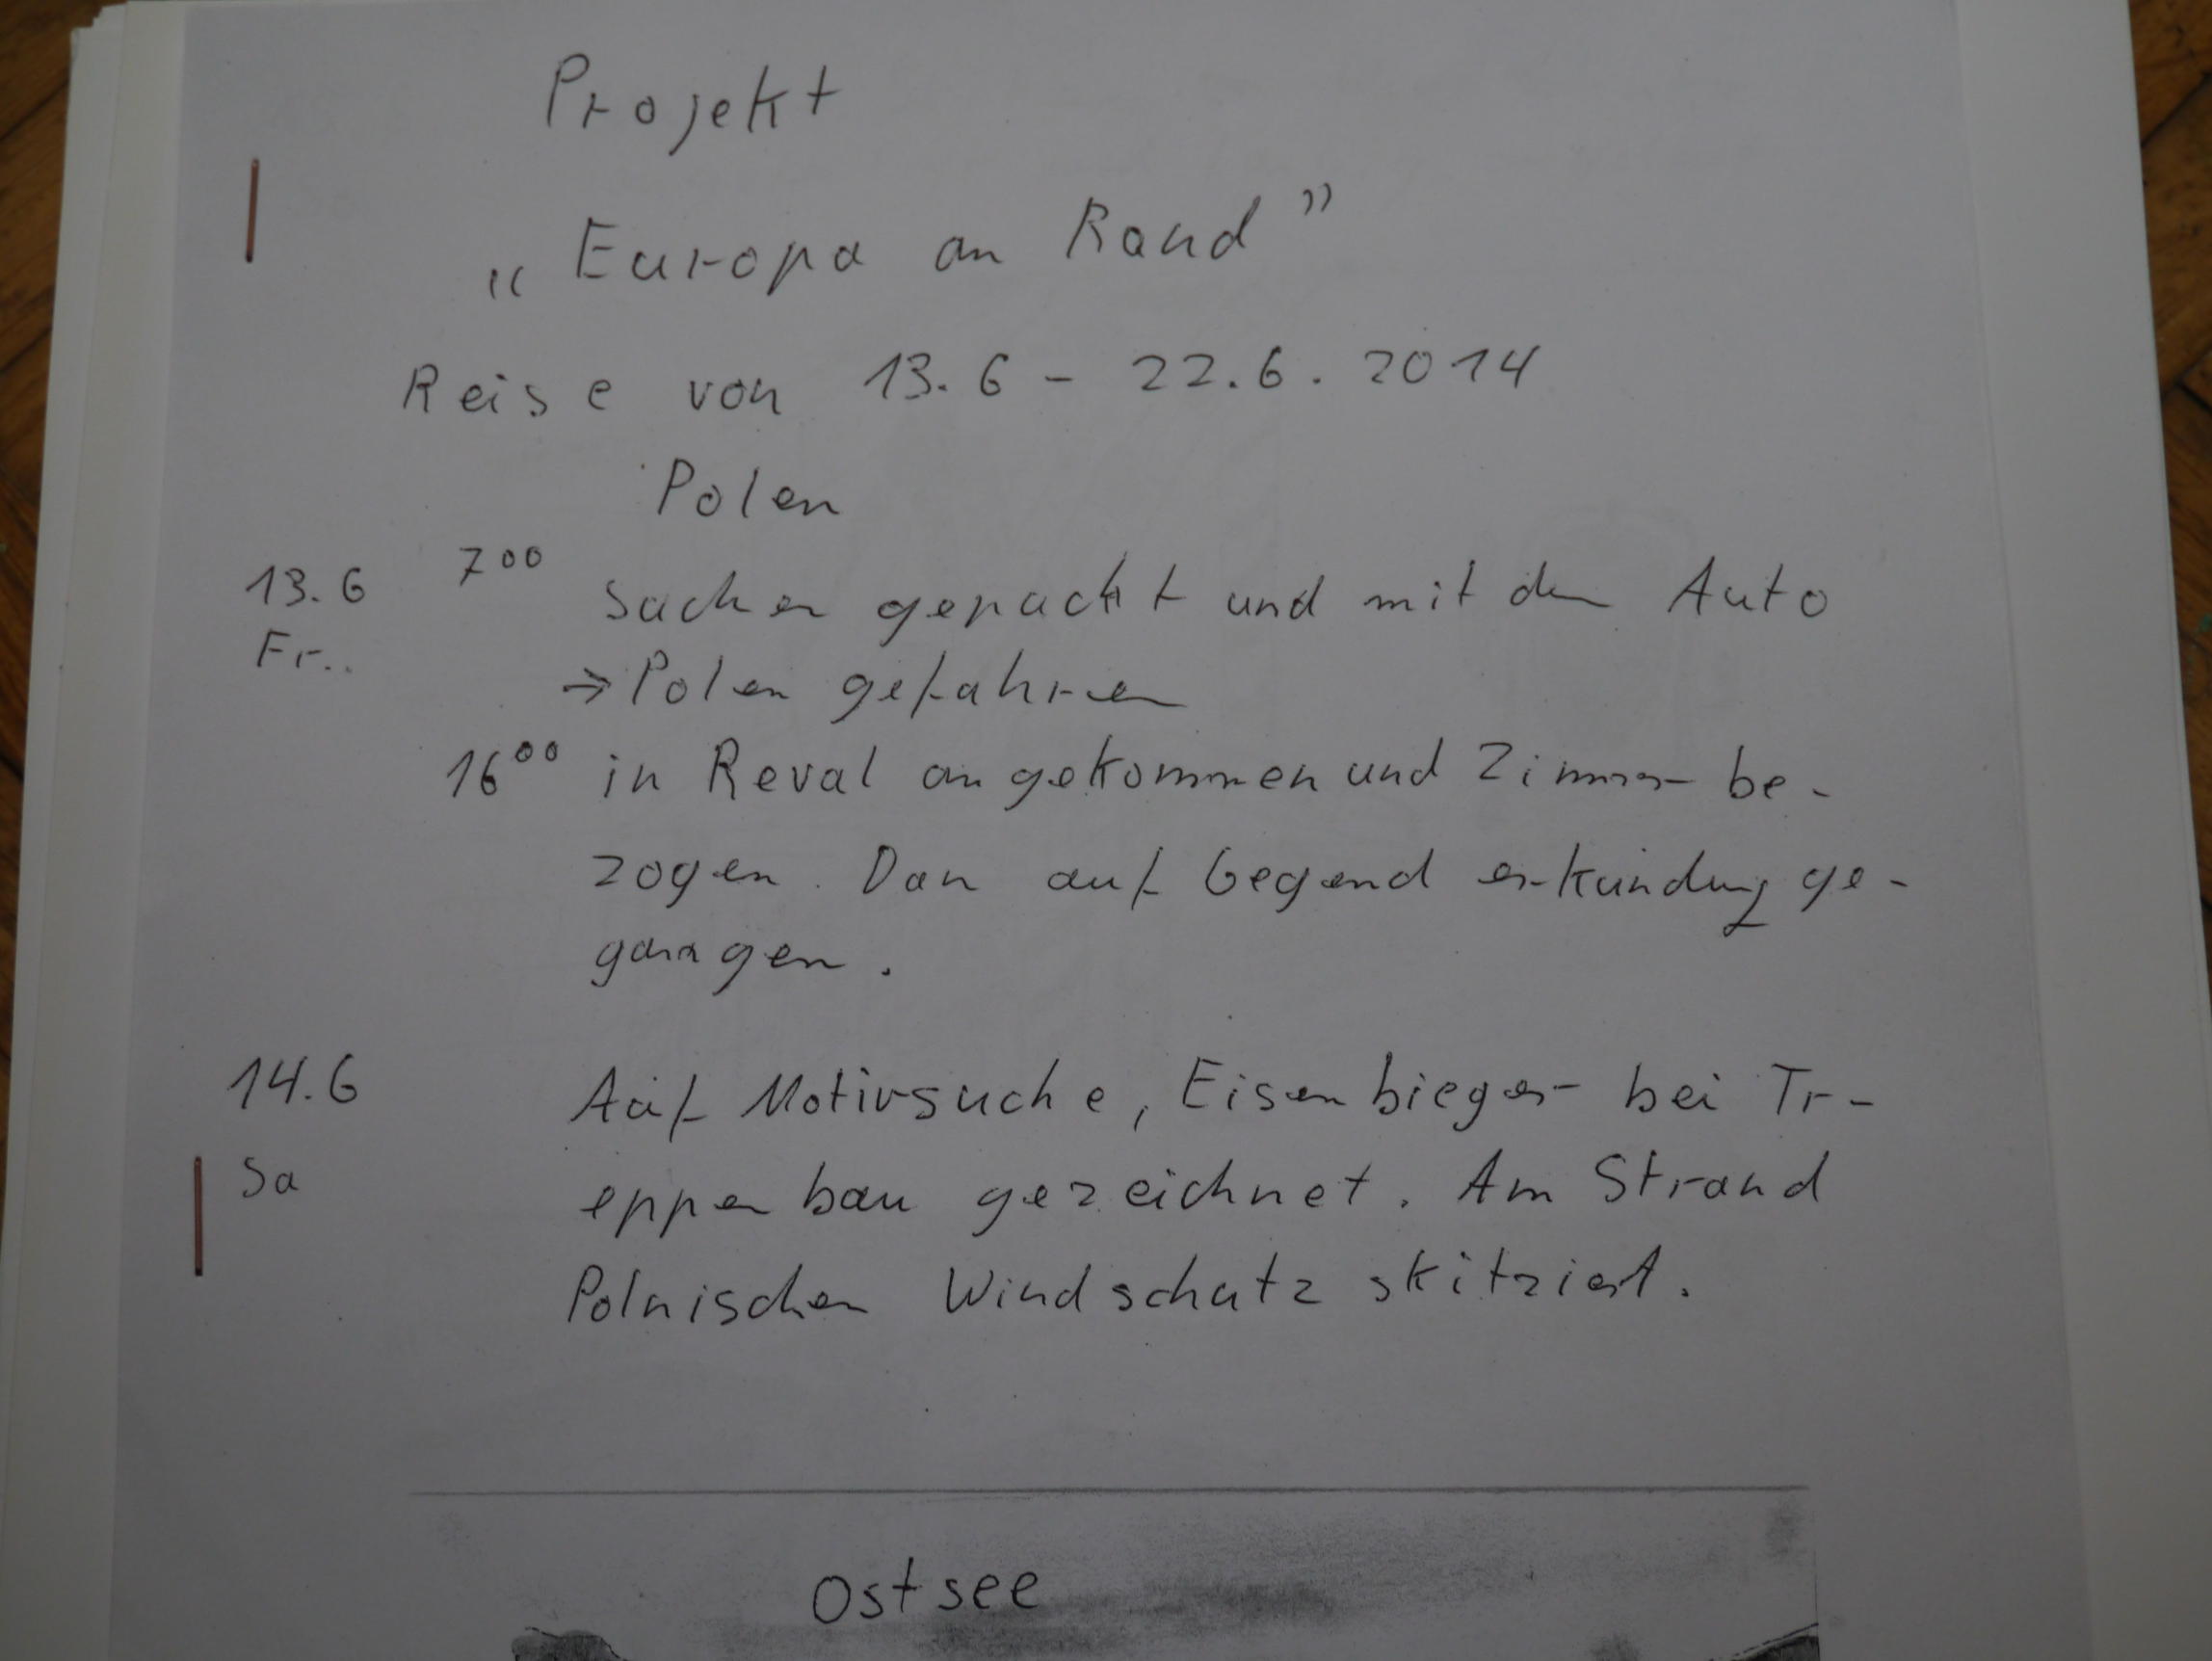 Projekt
„Europa an Rand”
Reise von 13.6 - 22.6. 2014
Polen
13.6 7⁰⁰ Sachen gepackt und mit den Auto
Fr.. → Polen gefahren
16⁰⁰ in Reval angekommen und Zimmer be-
zogen. Dan auf Gegend erkundung ge-
gangen.
14.6 Auf Motivsuche, Eisenbieger bei Tr-
Sa eppenbau gezeichnet. Am Strand
Polnischen Windschutz skitziert.
Ostsee